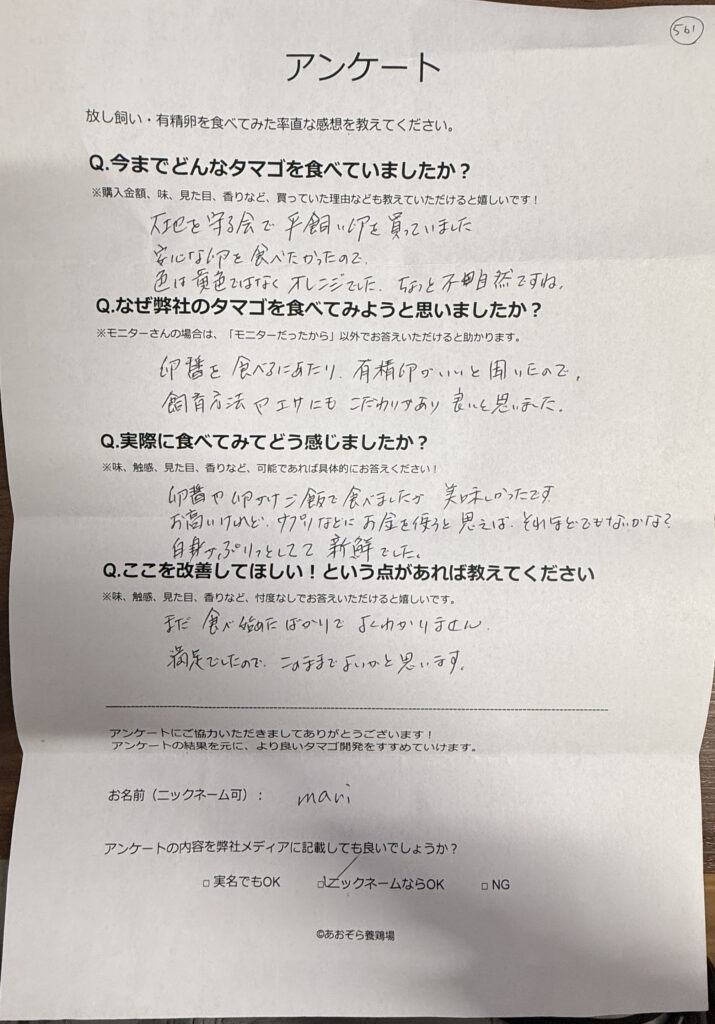 561
アンケート
放し飼い・有精卵を食べてみた率直な感想を教えてください。
Q.今までどんなタマゴを食べていましたか？
※購入金額、味、見た目、香りなど、買っていた理由なども教えていただけると嬉しいです！
大地を守る会で平飼い卵を買っていました
安心な卵を食べたかったので、
色は黄色ではなくオレンジでした。ちょっと不自然ですね。
Q.なぜ弊社のタマゴを食べてみようと思いましたか？
※モニターさんの場合は、「モニターだったから」以外でお答えいただけると助かります。
卵醤を食べるにあたり、有精卵がいいと聞いたので、
飼育方法やエサにもこだわりがあり良いと思いました。
Q.実際に食べてみてどう感じましたか？
※味、触感、見た目、香りなど、可能であれば具体的にお答えください！
卵醤や卵かけご飯で食べましたが美味しかったです
お高いけれど、サプリなどにお金を使うと思えば、それほどでもないかな？
白身がぷりっとしてて新鮮でした。
Q.ここを改善してほしい！という点があれば教えてください
※味、触感、見た目、香りなど、忖度なしでお答えいただけると嬉しいです。
まだ食べ始めたばかりでよくわかりません.
満足でしたので、このままでよいかと思います。
アンケートにご協力いただきましてありがとうございます！
アンケートの結果を元に、より良いタマゴ開発をすすめていけます。
お名前（ニックネーム可）： mari
アンケートの内容を弊社メディアに記載しても良いでしょうか？
□ 実名でもOK □ニックネームならOK □ NG
©あおぞら養鶏場